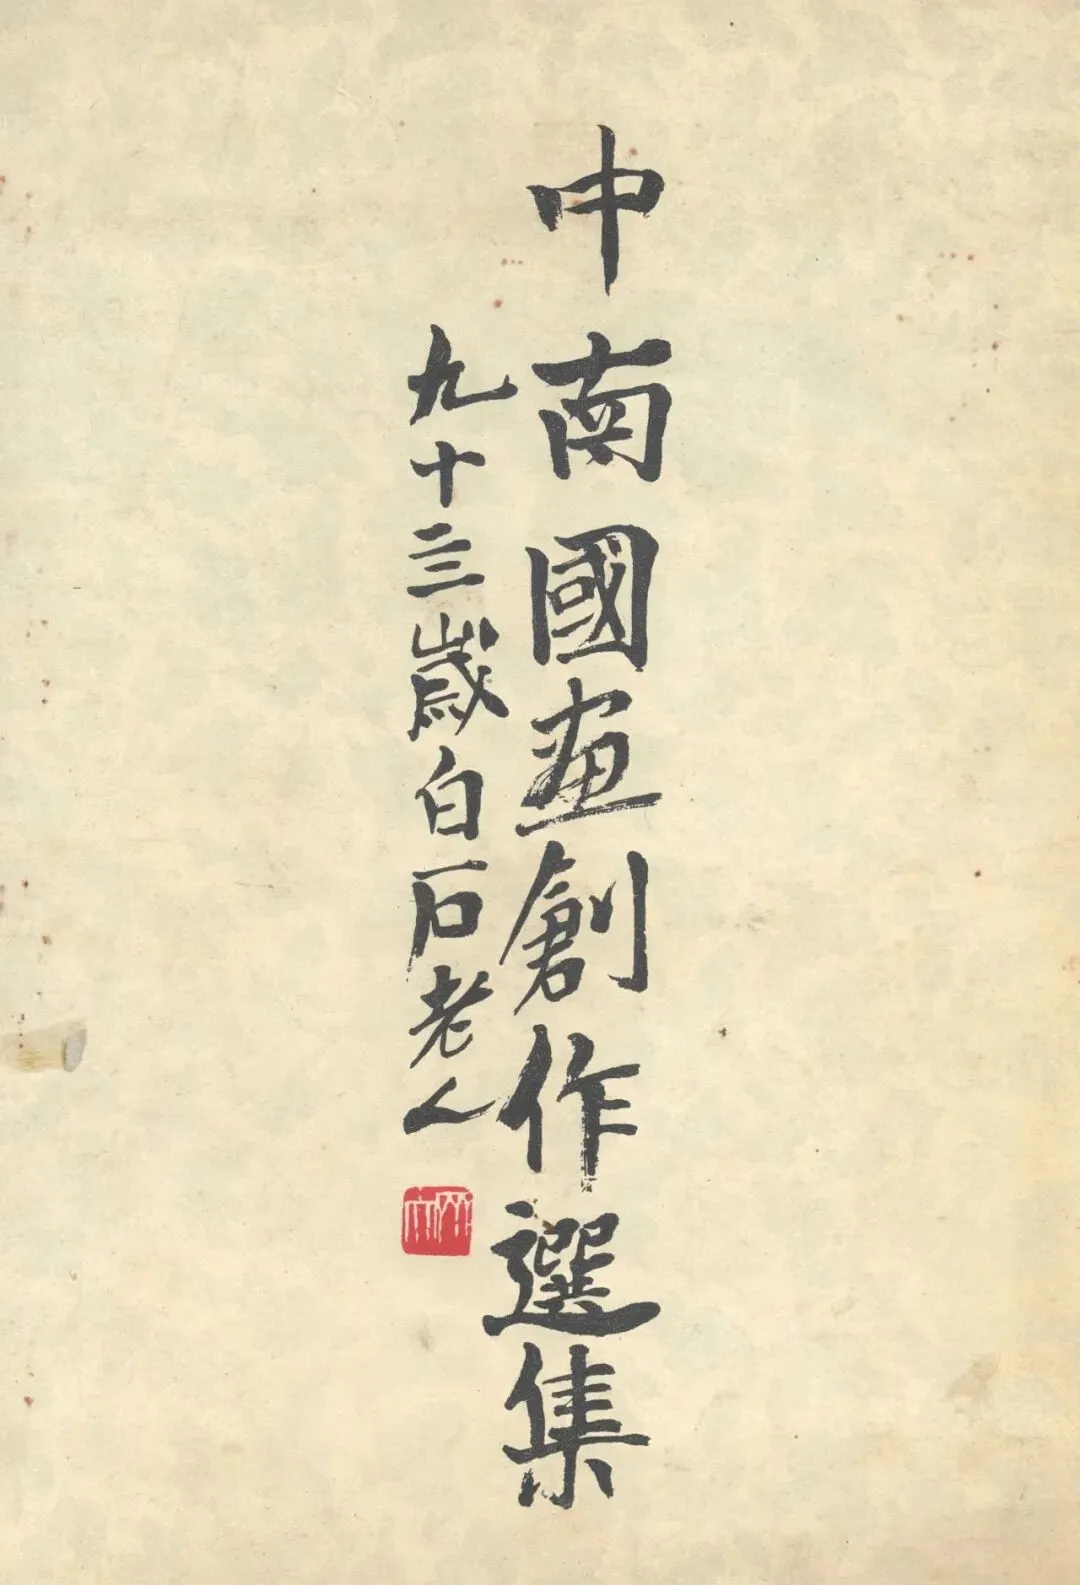 中南國画創作選集
九十三歲白石老人